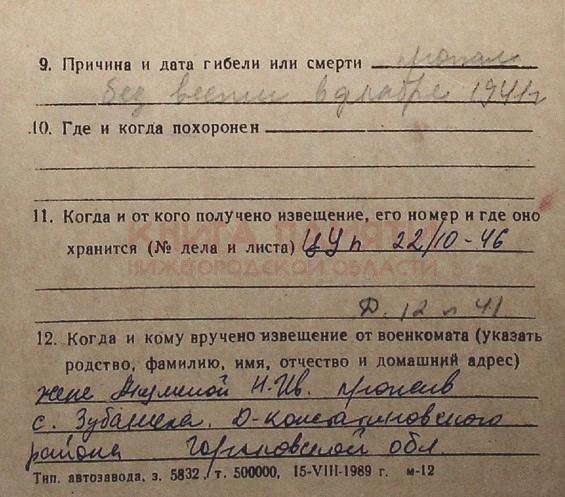 9. Причина и дата гибели или смерти пропал
без вести в декабре 1941г
10. Где и когда похоронен
11. Когда и от кого получено извещение, его номер и где оно
КНИГА ПАМЯТИ
хранится (№ дела и листа) ЦУ п 22/10-46
НИЖЕГОРОДСКОЙ ОБЛАСТИ
Д. 12 л 41
12. Когда и кому вручено извещение от военкомата (указать
родство, фамилию, имя, отчество и домашний адрес)
жене Н. Ив. прожив
с. Д-Константиновского
района Горьковской обл.
Тип. автозавода, з. 5832, т. 500000, 15-VIII-1989 г. м-12